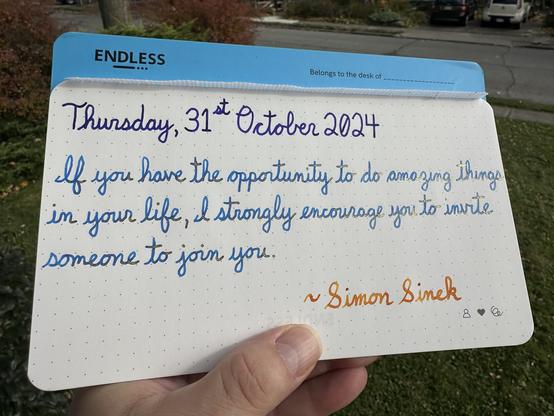 ENDLESS
Belongs to the desk of
Thursday, 31st October 2024
If you have the opportunity to do amazing things
in your life, I strongly encourage you to invite
someone to join you.
~ Simon Sinek